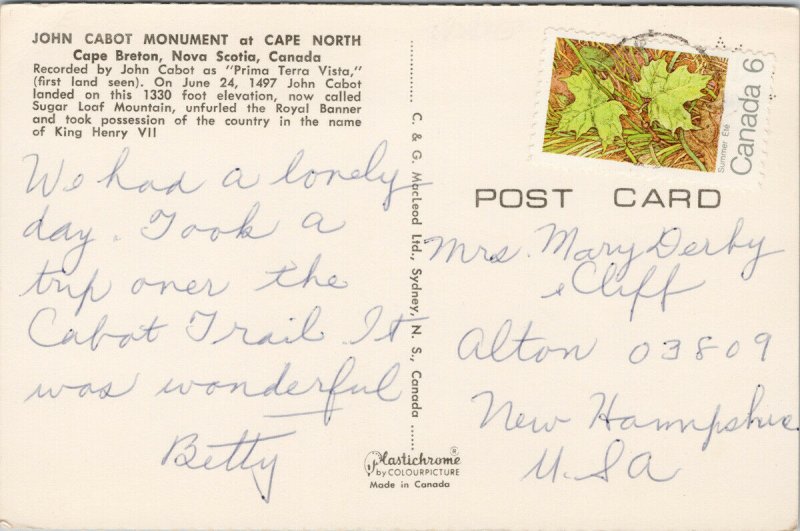 JOHN CABOT MONUMENT at CAPE NORTH
Cape Breton, Nova Scotia, Canada
Recorded by John Cabot as "Prima Terra Vista,"
(first land seen). On June 24, 1497 John Cabot
landed on this 1330 foot elevation, now called
Sugar Loaf Mountain, unfurled the Royal Banner
and took possession of the country in the name
of King Henry VII
We had a lonely
day. Took a
trip over the
Cabot Trail. It
was wonderful
Betty
C. & G. MacLeod Ltd., Sydney, N. S., Canada
Plastichrome®
by COLOURPICTURE
Made in Canada
Canada 6
Summer Eté
POST CARD
Mrs. Mary Derby
& Cliff
Alton 03809
New Hampshire
U.S.A